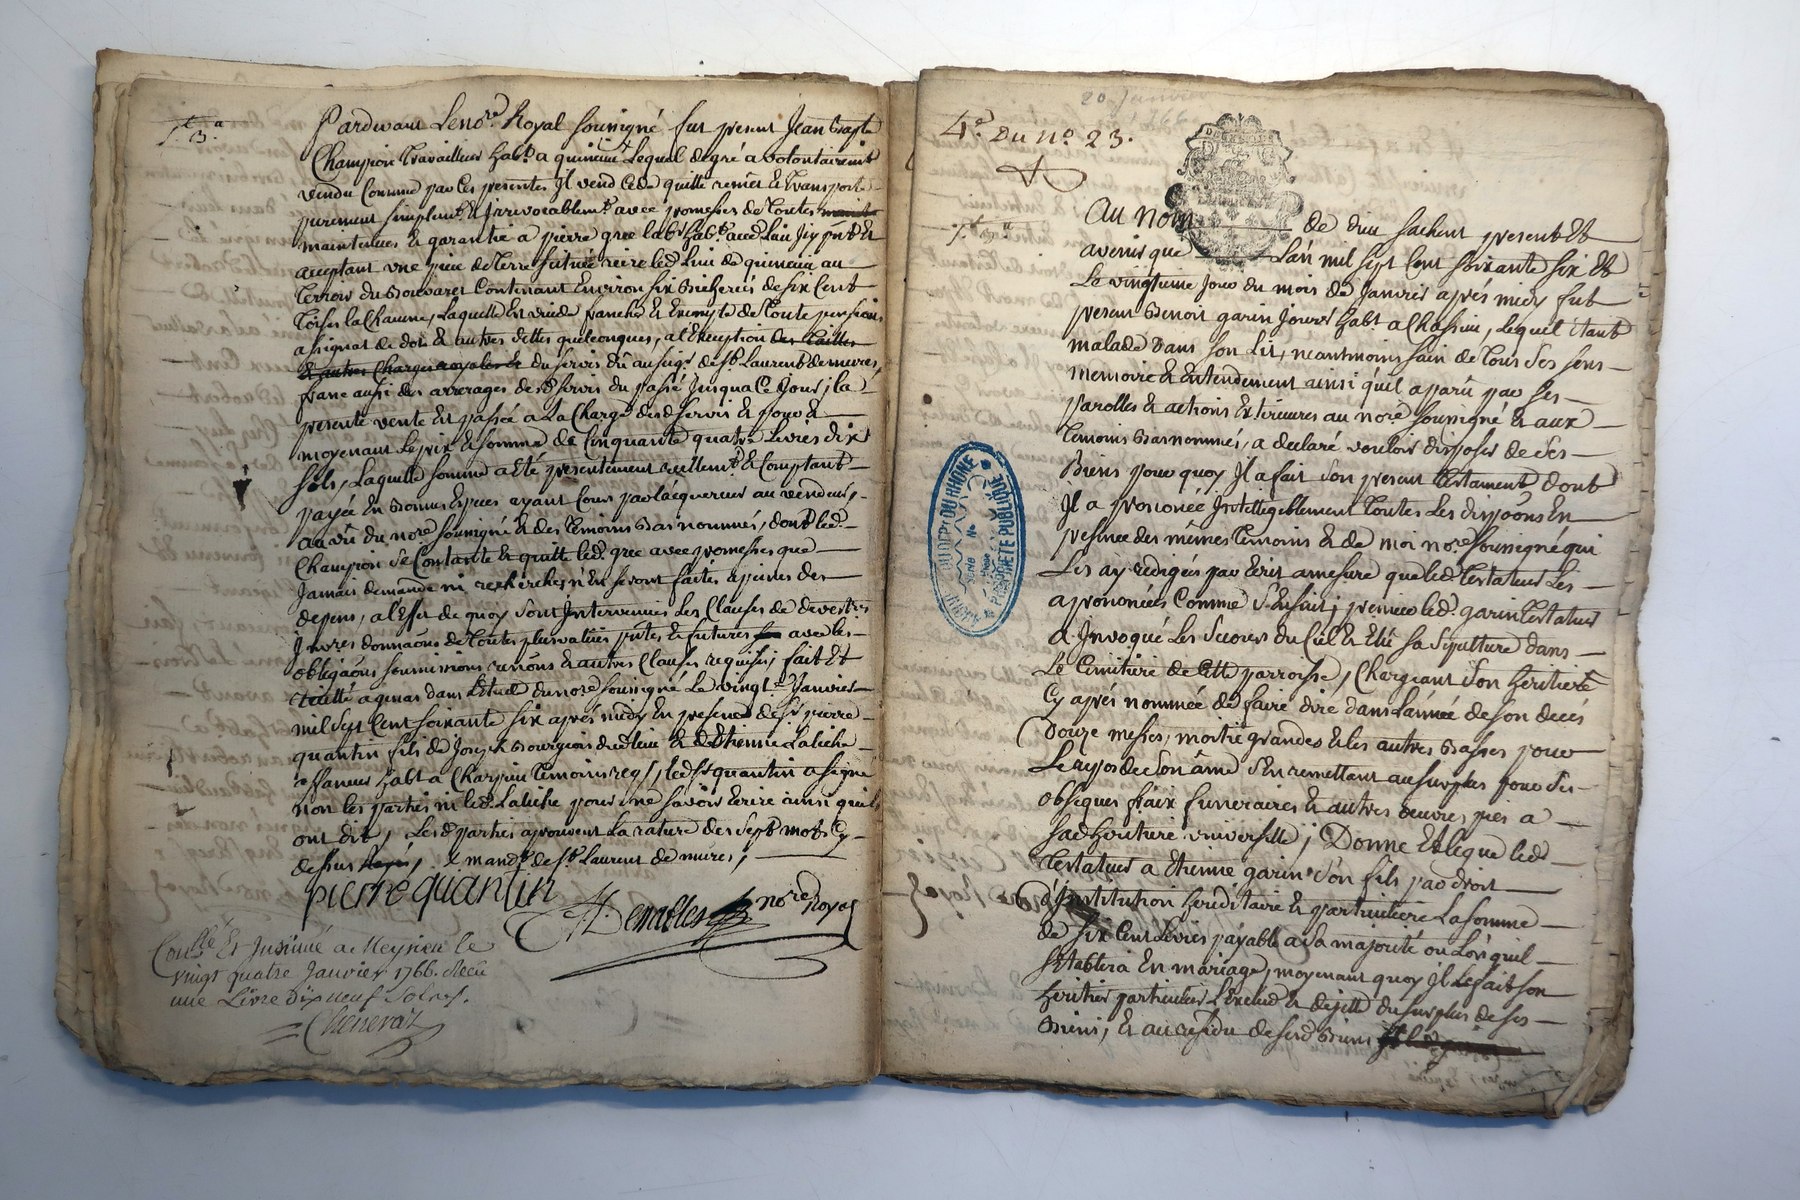 Pardevant Le no.re Royal soussigné fut present Jean Bapte
Champion travailleur hab.t a quincieu Lequel de gré a volontairemt
vendu Comme par Ces presentes Jl vend Cede quitte remet & transporte
purement simplemt. & Jrrevocablemt. avec promesses de toutes
maintenues & garantie a pierre gree lab.r hab.t aud. Lieu Jcy pnt &
acceptant une piece de terre située
terroir du Contenant Environ six Bicherées de six Cent
toises la Chacune, Laquelle Est vuide franche & Exempte de toute pension
assignat de dot & autres dettes quelconques, a l'Exception des tailles
& autres Charges royales & du servis dû au seigr. de St. Laurent de mures,
franc aussi des arrerages desd servis du passé Jusqua Ce Jour, la
presente vente Est passée a La Charge desd servis & pour &
moyenant Le prix & somme de Cinquante quatre Livres dix
sols, Laquelle somme a Eté presentement reellemt. & Comptant
payée En Bonnes Especes ayant Cours par l'acquereur au vendeur,
au vû du nore soussigné & des temoins Bas nommés, dont led.
Champion se Contante & quitte led. gree avec promesses que
Jamais demande ni recherches n'En seront faites a peines des
depens, a l'Effet de quoy sont Jntervenues Les Clauses de devestir
Jnvestir donnaõns de toutes plus valües pntes & futures avec les
obligaõns soumissions renonc & autres Clauses requises, fait Et
a genas dans L'Etude du nore soussigné Le vingt Janvier
mil sept Cent soixante six aprés midy En presence de sr. pierre
quantin fils de Joseph Bourgeois dud lieu & d'Etienne
hab.t a temoins req.s, led. sr. quantin a signé
non les parties ni led. pour ne savoir Ecrire ainsi quils
ont dit, Les d. parties aprouvent La rature des sept mots Cy
dessus, & mand.t de St. Laurent de mures,
pierre quantin
nore Royal
Con.llé Et Insinué a Meyzieu le
vingt quatre Janvier 1766. Receu
une Livre dix neuf sols
Chenevaz
20 Janvier
1766
4.e Du No. 23.
Au Nom de dieu sachent present Et
avenir que L'an mil sept Cent soixante six Et
Le vingtieme Jour du mois de Janvier aprés midy fut
present Benoit garin Jour.r hab.t a Chassieu, Lequel Etant
malade Dans son Lit, neantmoins sain de tous ses sens
memoire & Entendement ainsi quil a parû par ses
parolles & actions Exterieures au nore. soussigné & aux
temoins Bas nommés, a declaré vouloir disposer de ses
Biens pour quoy Jl a fait son present testament dont
Jl a prononcé Jntellegiblement toutes Les disp.oõns En
presence des mémes temoins & de moi nore soussigné qui
Les ay redigées par Ecrit a mesure que led. testateur Les
a prononcées Comme s'Ensuit; premiere led. garin testateur
a Jnvoqué Les secours du Ciel & Elû sa sepulture dans
Le Cimitiere de Cette parroisse, Chargeant son heritiere
Cy aprés nommée de faire dire dans l'année de son decés
Douze messes, moitié grandes & les autres Basses pour
Le repos de son âme s'En remettant au surplus pour ses
obseques fraix funeraires & autres oeuvres pies a
sad. heritiere universelle; Donne Et legue led.
testateur a Etienne garin son fils par droit
d'Jnstitution hereditaire & particuliere La somme
de six Cent Livres payable a sa majorité ou Lors quil
s'Etablira En mariage, moyenant quoy Jl Le fait son
heritier particulier L'Exclud & dejette du surplus de ses
Biens; & au residu de sesd Biens
ARCHIVES DU DEPT DU RHONE
PROPRIETE PUBLIQUE